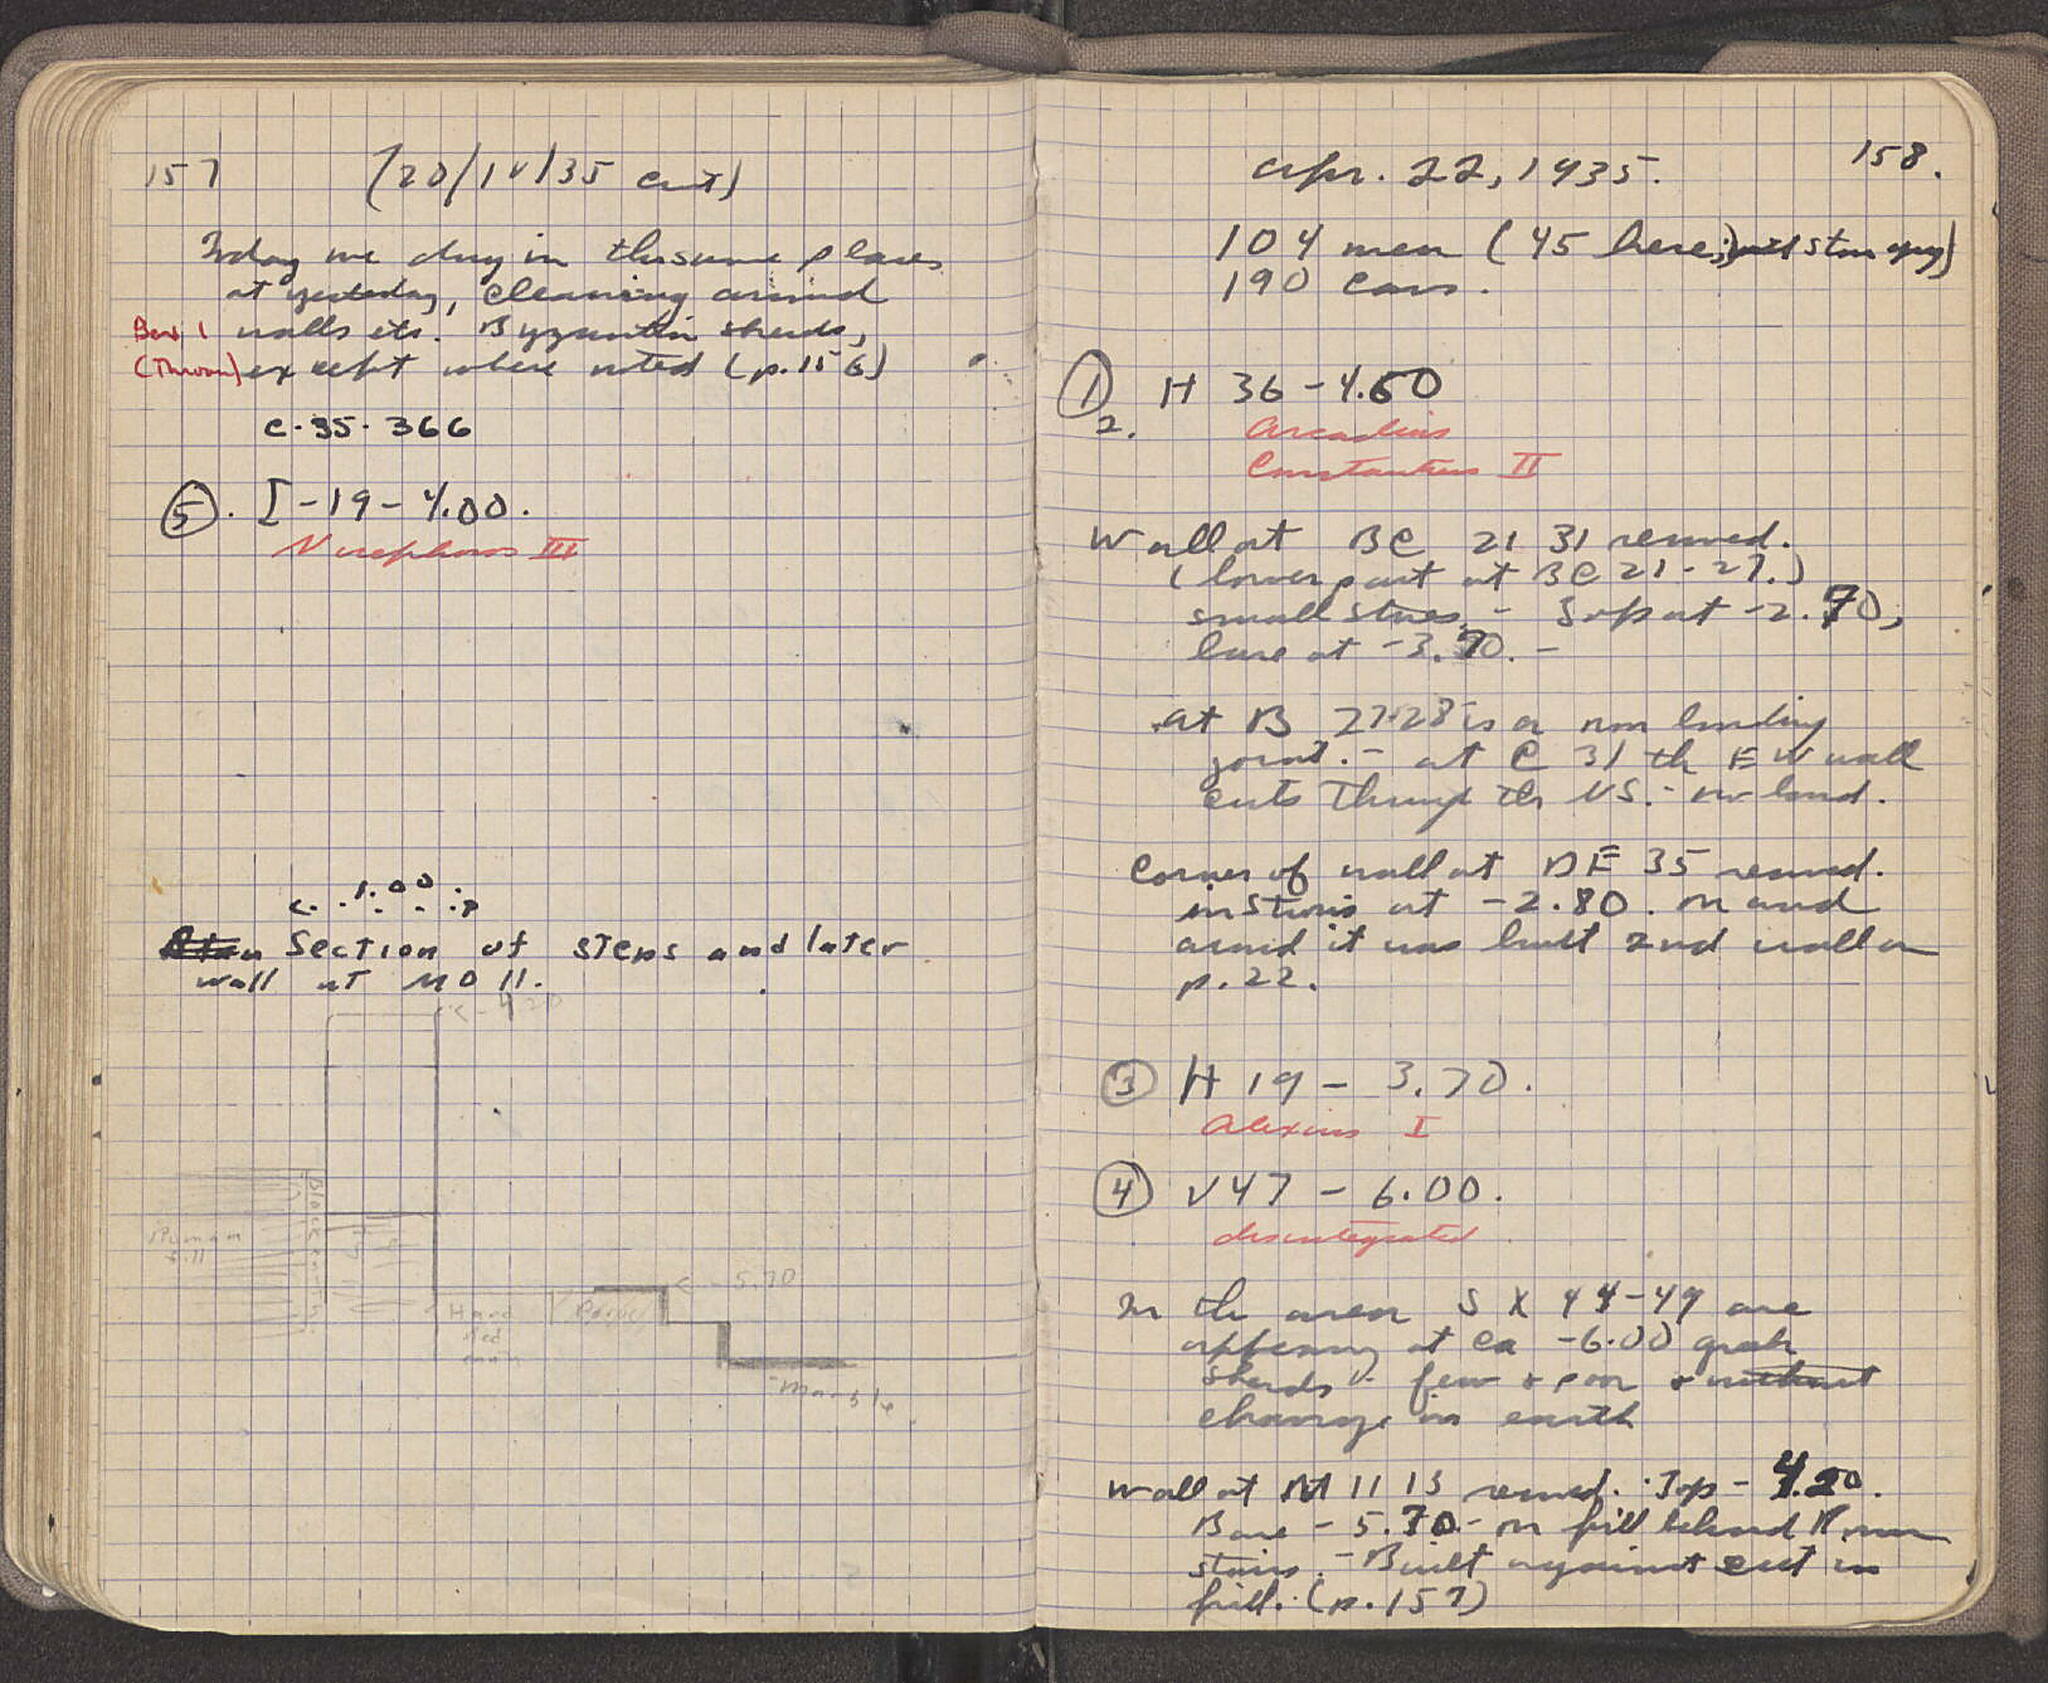 157 (20/IV/35 cont)
Today we dug in the same places
at yesterday, cleaning around
Box 1 walls etc. Byzantin sherds,
(Thrown) except where noted (p. 156)
C-35-366
5. I-19-4.00.
Nicephoros III
1.00
Section of steps and later
wall at MO 11.
<-4.20
Block
Roman
fill
<-5.70
Hard
Red
Poros
Marble
158.
Apr. 22, 1935.
104 men (45 here;
190 cars.
1 H 36-4.60
2. Arcadius
Constantius II
Wall at BC 21 31 removed.
(lower part at BC 21-27.)
small stones - Top at -2.70,
base at -3.70. -
at B 27-28 is a non bonding
joint. - at C 31 the EW wall
cuts through the NS. - no bond.
Corner of wall at DE 35 removed.
at -2.80. on and
around it was built 2nd wall on
p. 22.
3 H 19 - 3.70.
Alexius I
4 V 47 - 6.00.
disintegrated
In the area S X 44-49 are
appearing at ca -6.00 greek
sherds - few + poor + without
change in earth
Wall at 11 13 removed. Top - 4.20.
Base - 5.70 - on fill behind Roman
stairs. - Built against cut in
fill. (p. 157)